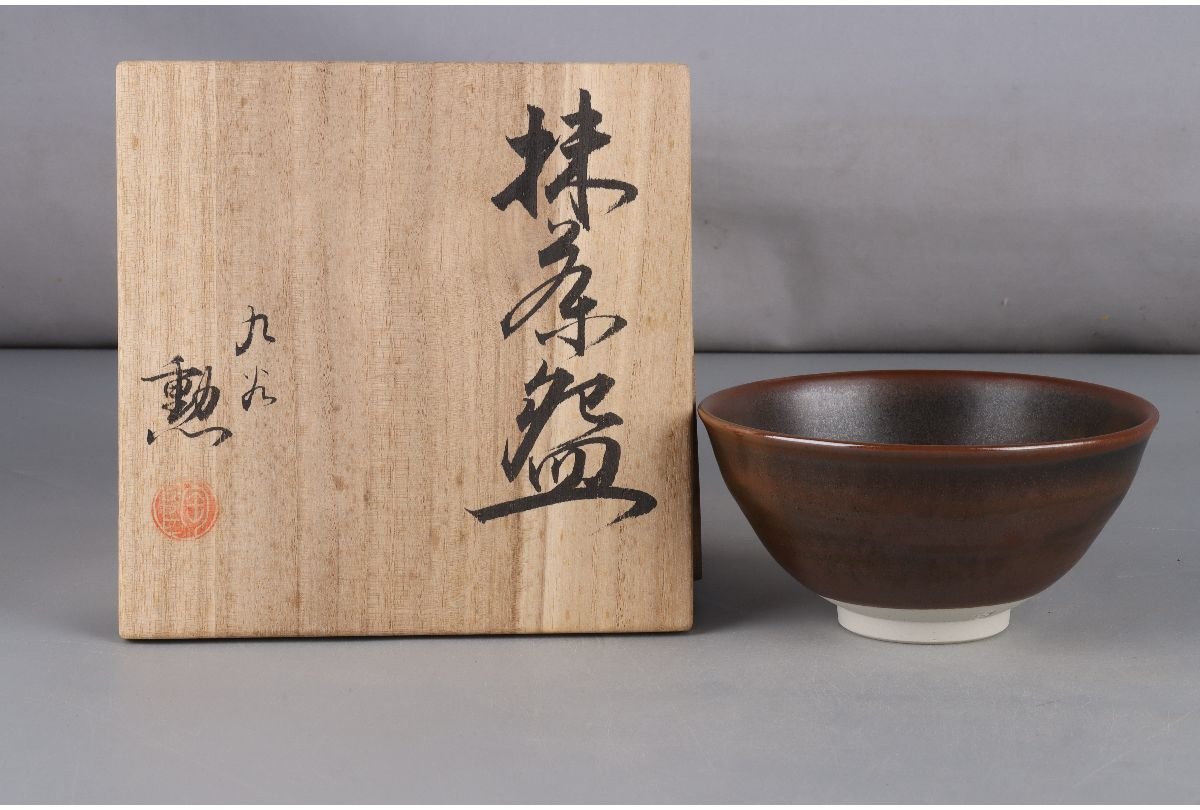 抹茶盌
九谷
勲